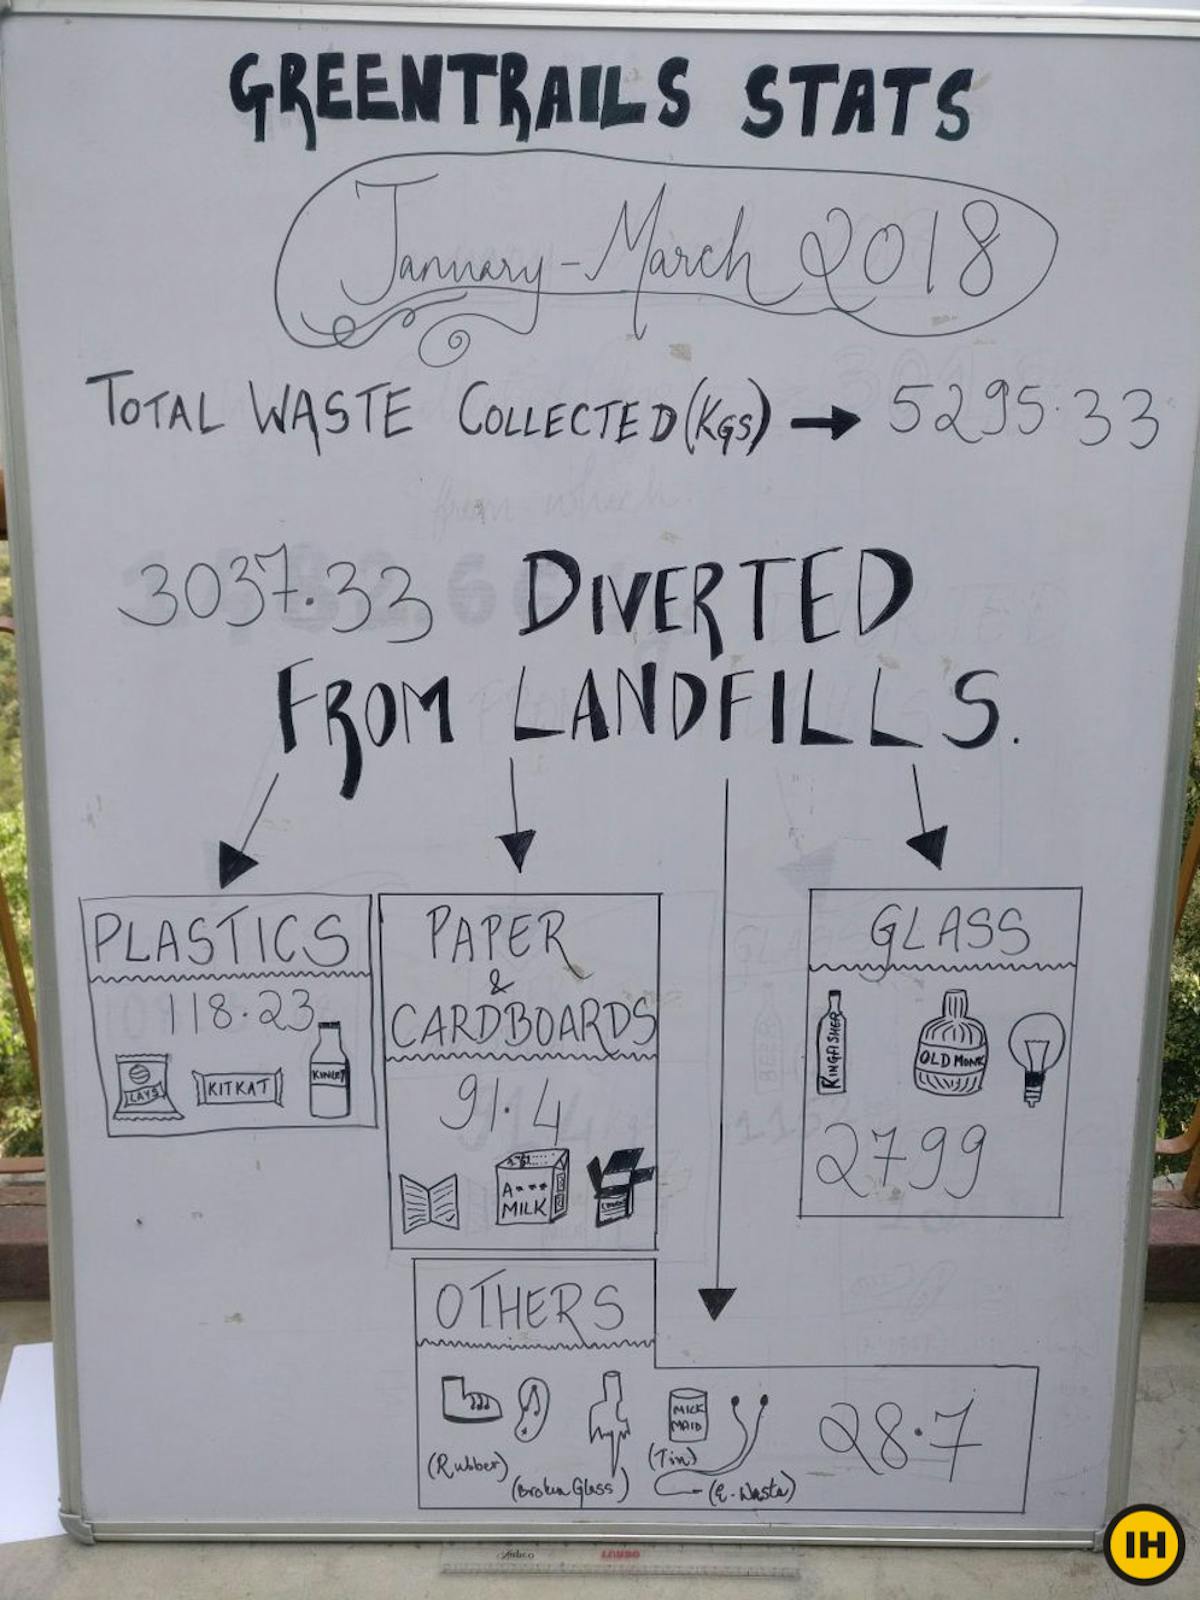 GREENTRAILS STATS
January-March 2018
TOTAL WASTE COLLECTED (KGS) → 5295.33
3037.33 DIVERTED
FROM LANDFILLS.
PLASTICS
118.23
LAYS
KITKAT
KINLEY
PAPER
&
CARDBOARDS
91.4
A****
MILK
GLASS
KINGFISHER
OLD MONK
2799
OTHERS
MILK
MAID
28.7
(Rubber)
(Broken Glass)
(Tin)
(E-Waste)
IH